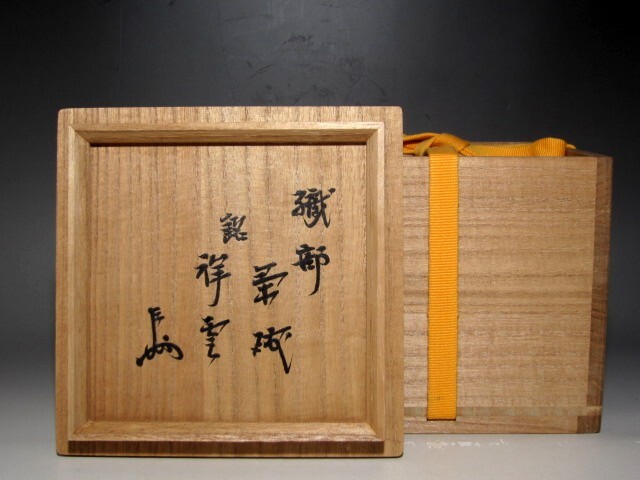 織部
茶碗
銘
祥雲